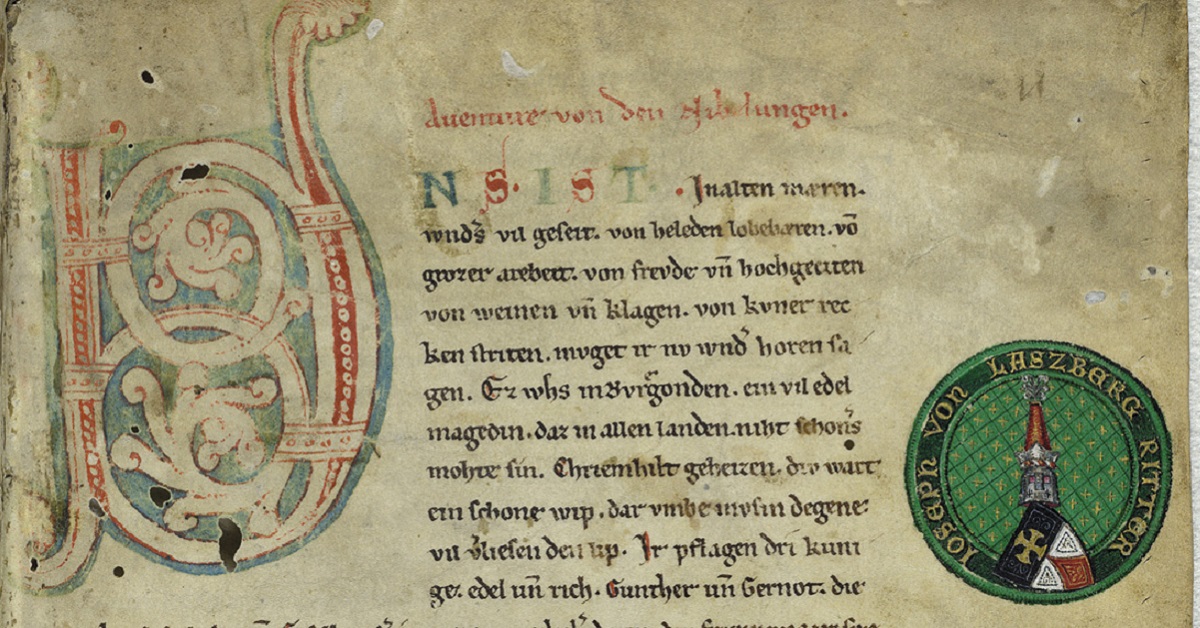 Auenture von den Nibelungen.
VNS. IST. In alten mæren.
wnd͛s vil geseit. von heleden lobebæren. võ
grozer arebeit. von frevde vñ hochgeciten
von weinen vñ klagen. von kvner rec
ken striten. mvget ir nv wnd͛ horen sa
gen. Ez whs in Bvrgonden. ein vil edel
magedin. daz in allen landen. niht schon͛s
mohte sin. Chriemhilt geheizen. div wart
ein schone wip. dar vmbe mvsin degene
vil v͛liesen den lip. Ir pflagen dri kuni
ge. edel vñ rich. Gunther vñ Gernot. die
IOSEPH VON LASZBERG RITTER